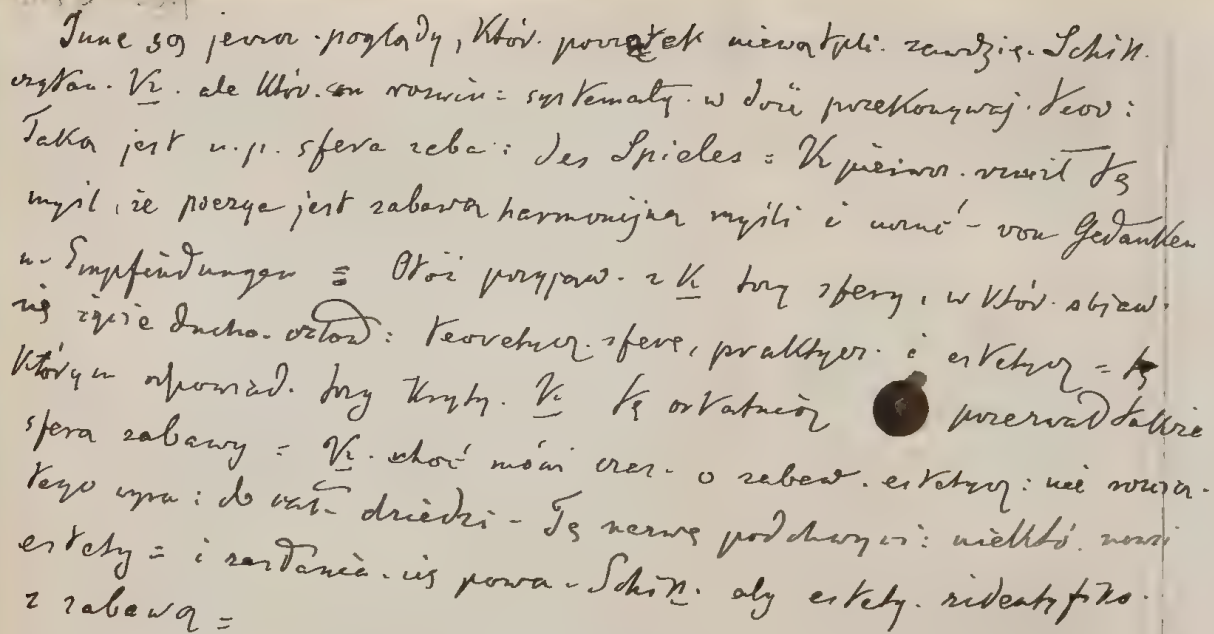 Inne są jeszcze poglądy, któr. początek niewątpli. zawdzię. Schill.
czytan. K. ale któr. on rozwin = systematy. w dość przekonywaj. teor:
Taką jest n.p. sfera zaba: des Spieles = K pierwsz. rzucił tę
myśl, że poezya jest zabawą harmonijną myśli i uczuć - von Gedanken
u- Empfindungen = Otóż przyjąw. z K trzy sfery, w któr. objaw.
się życie ducho. człow: teoretycz. sferę, praktycz. i estetycz =
którym odpowiad. trzy Kryty. K tę ostatnią przezwał także
sferą zabawy = K. choć mówi czas. o zabaw. estetycz: nie rozsze.
tego wyra: do całe- dziedzi - Tę nazwę podchwyci: niektó. nowsi
estety = i zasłania. się powa - Schill. aby estety. zidentyfiko.
z zabawą =